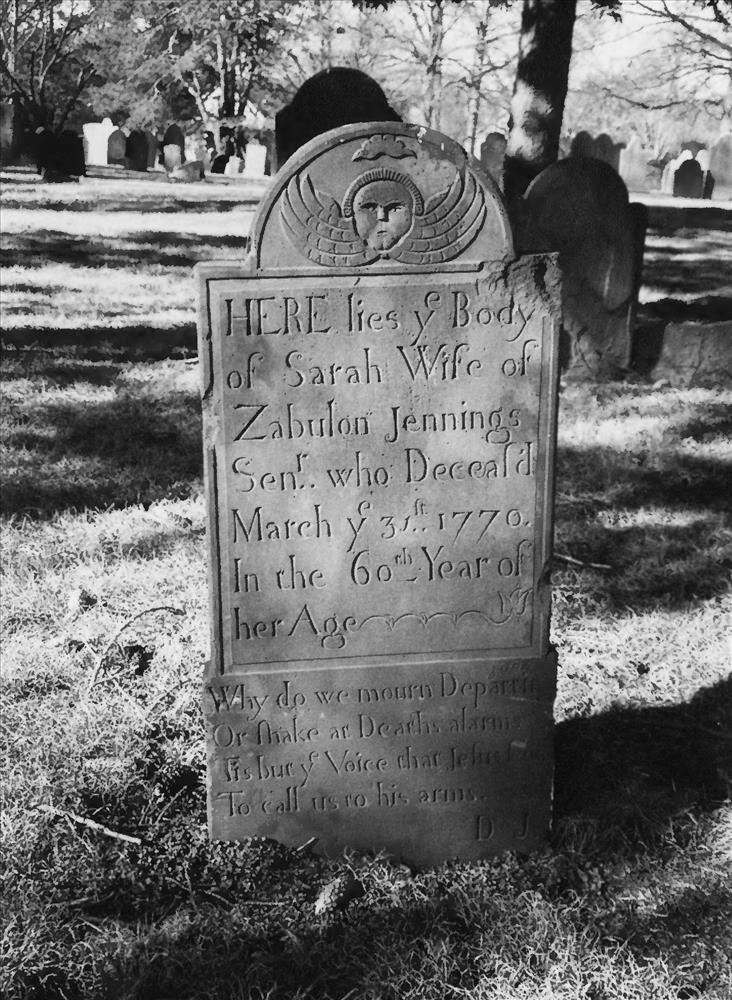 HERE lies yͤ Body
of Sarah Wife of
Zabulon Jennings
Senʳ. who Deceaſ'd
March yͤ 31ˢᵗ. 1770.
In the 60ᵗʰ Year of
her Age
Why do we mourn Departing
Or ſhake at Deaths alarms
Tis but yͤ Voice that Jeſus
To call us to his arms.
D J